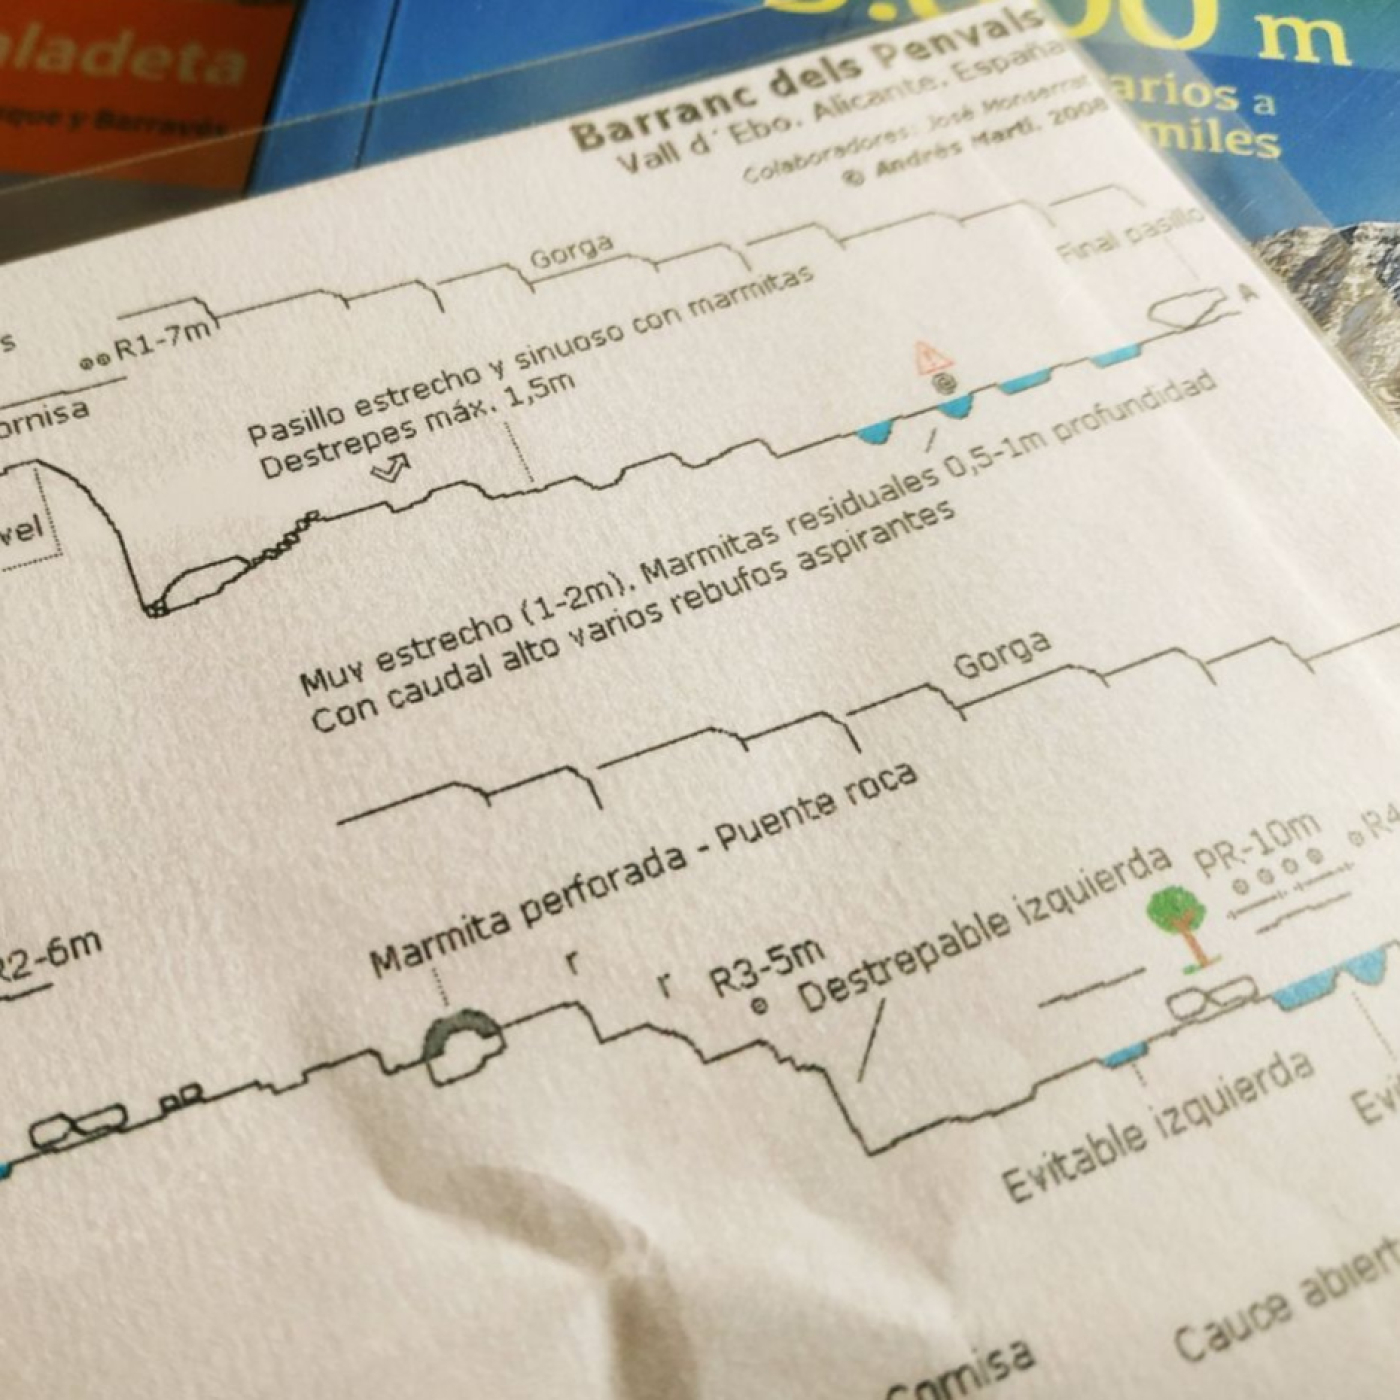 aladeta
que y Barravés
3.000 m
arios a
miles
Barranc dels Penvals
Vall d´Ebo. Alicante. España
Colaboradores: José Monserrat
© Andrés Martí. 2008
s
Gorga
Final pasillo
R1-7m
ornisa
Pasillo estrecho y sinuoso con marmitas
Destrepes máx. 1,5m
A
vel
Muy estrecho (1-2m). Marmitas residuales 0,5-1m profundidad
Con caudal alto varios rebufos aspirantes
Gorga
R2-6m
Marmita perforada - Puente roca
r
r
R3-5m
Destrepable izquierda
PR-10m
R4
Evitable izquierda
Evi
Cornisa
Cauce abiert